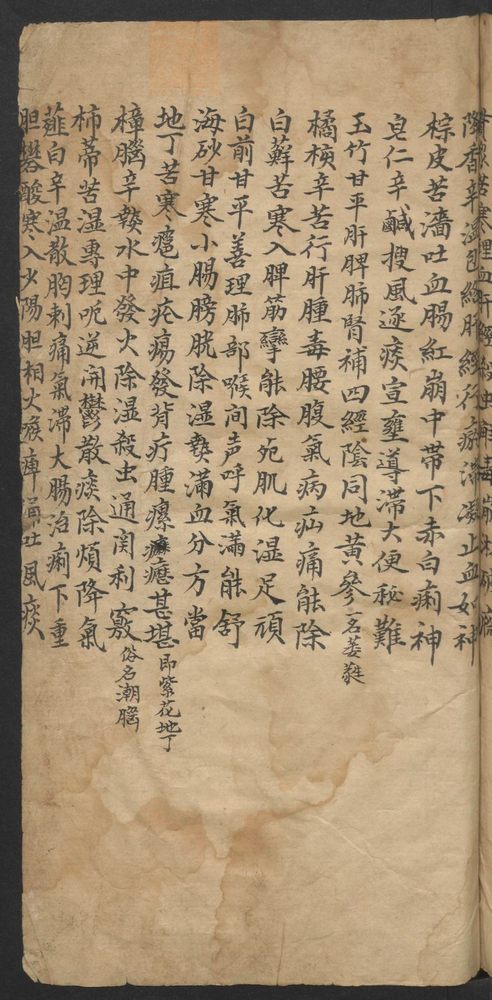 降香辛溫包絡肝經行瘀滯凝止血如神
棕皮苦濇吐血腸紅崩中帶下赤白痢神
皂仁辛鹹搜風逐痰宣壅導滯大便秘難
玉竹甘平肝脾肺腎補四經陰同地黃參一名萎蕤
橘核辛苦行肝腫毒腰腹氣病疝痛能除
白蘚苦寒入脾筋攣能除死肌化湿足頑
白前甘平善理肺部喉间声呼氣滿能舒
海砂甘寒小腸膀胱除湿熱滿血分方當
地丁苦寒癰疽疮瘍發背疔腫瘰癧甚堪即紫花地丁
樟腦辛熱水中發火除湿殺虫通関利竅俗名潮腦
柿蒂苦湿專理呃逆開鬱散痰除煩降氣
薤白辛温散胸刺痛氣滯大腸治痢下重
胆礬酸寒入少陽胆相火喉痺涌吐風痰